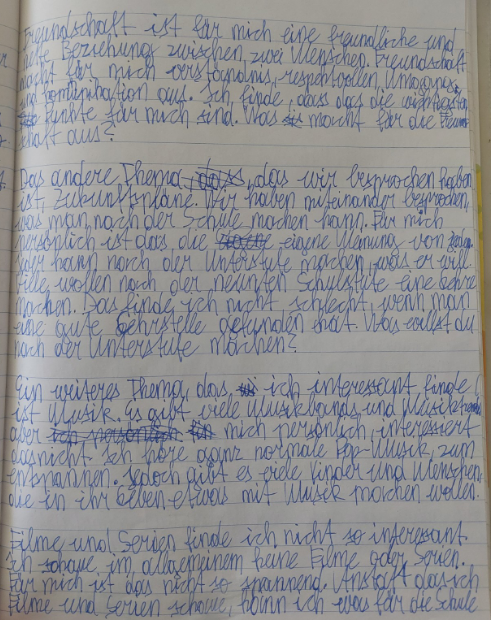 Freundschaft ist für mich eine freundliche und
Beziehung zwischen zwei Menschen. Freundschaft
macht für mich verständnis, respektvollen Umgang,
und kommunikation aus. Ich finde, dass das die wichtigsten
Punkte für mich sind. Was macht für die Freund-
schaft aus?
Das andere Thema, das wir besprochen haben
ist, Zukunftspläne. Wir haben miteinander besprochen,
was man nach der Schule machen kann. Für mich
persönlich ist das die eigene Meinung von
jeder kann nach der Unterstufe machen, was er will.
Viele wollen nach der neunten Schulstufe eine Lehre
machen. Das finde ich nicht schlecht, wenn man
eine gute Lehrstelle gefunden hat. Was willst du
nach der Unterstufe machen?
Ein weiteres Thema, das ich interessant finde,
ist Musik. Es gibt viele Musikbands und
aber mich persönlich interessiert
das nicht. Ich höre ganz normale Pop-Musik, zum
entspannen. Jedoch gibt es viele Kinder und Menschen,
die in ihr Leben etwas mit Musik machen wollen.
Filme und Serien finde ich nicht so interessant.
Ich schaue im allgemeinem keine Filme oder Serien.
Für mich ist das nicht so spannend. Anstatt das ich
Filme und Serien schaue, kann ich was für die Schule